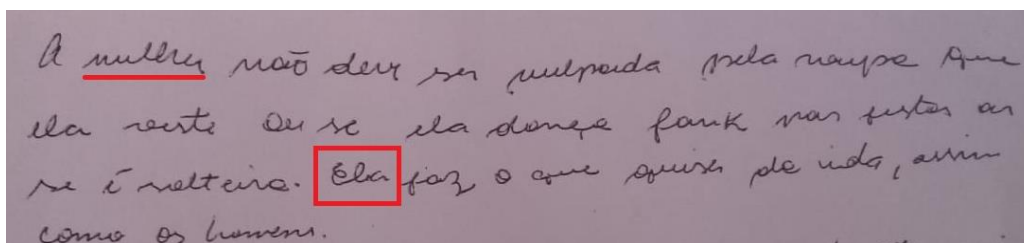 A mulher não deve ser culpada pela roupa que
ela veste ou se ela dança fank nas festas ou
se é solteira. Ela faz o que quiser da vida, assim
como os homens.